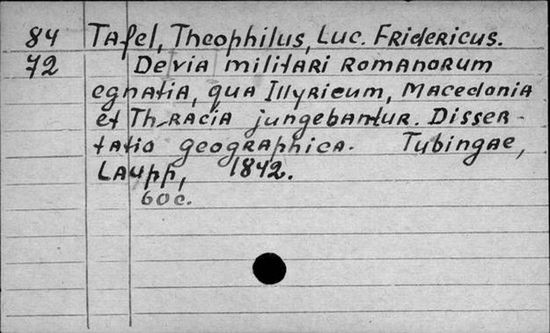 84 Tafel, Theophilus, Luc. Fridericus.
72 De via militari Romanorum
egnatia, qua Illyricum, Macedonia
et Thracia jungebantur. Disser-
tatio geographica. Tubingae,
Laupp, 1842.
60 c.